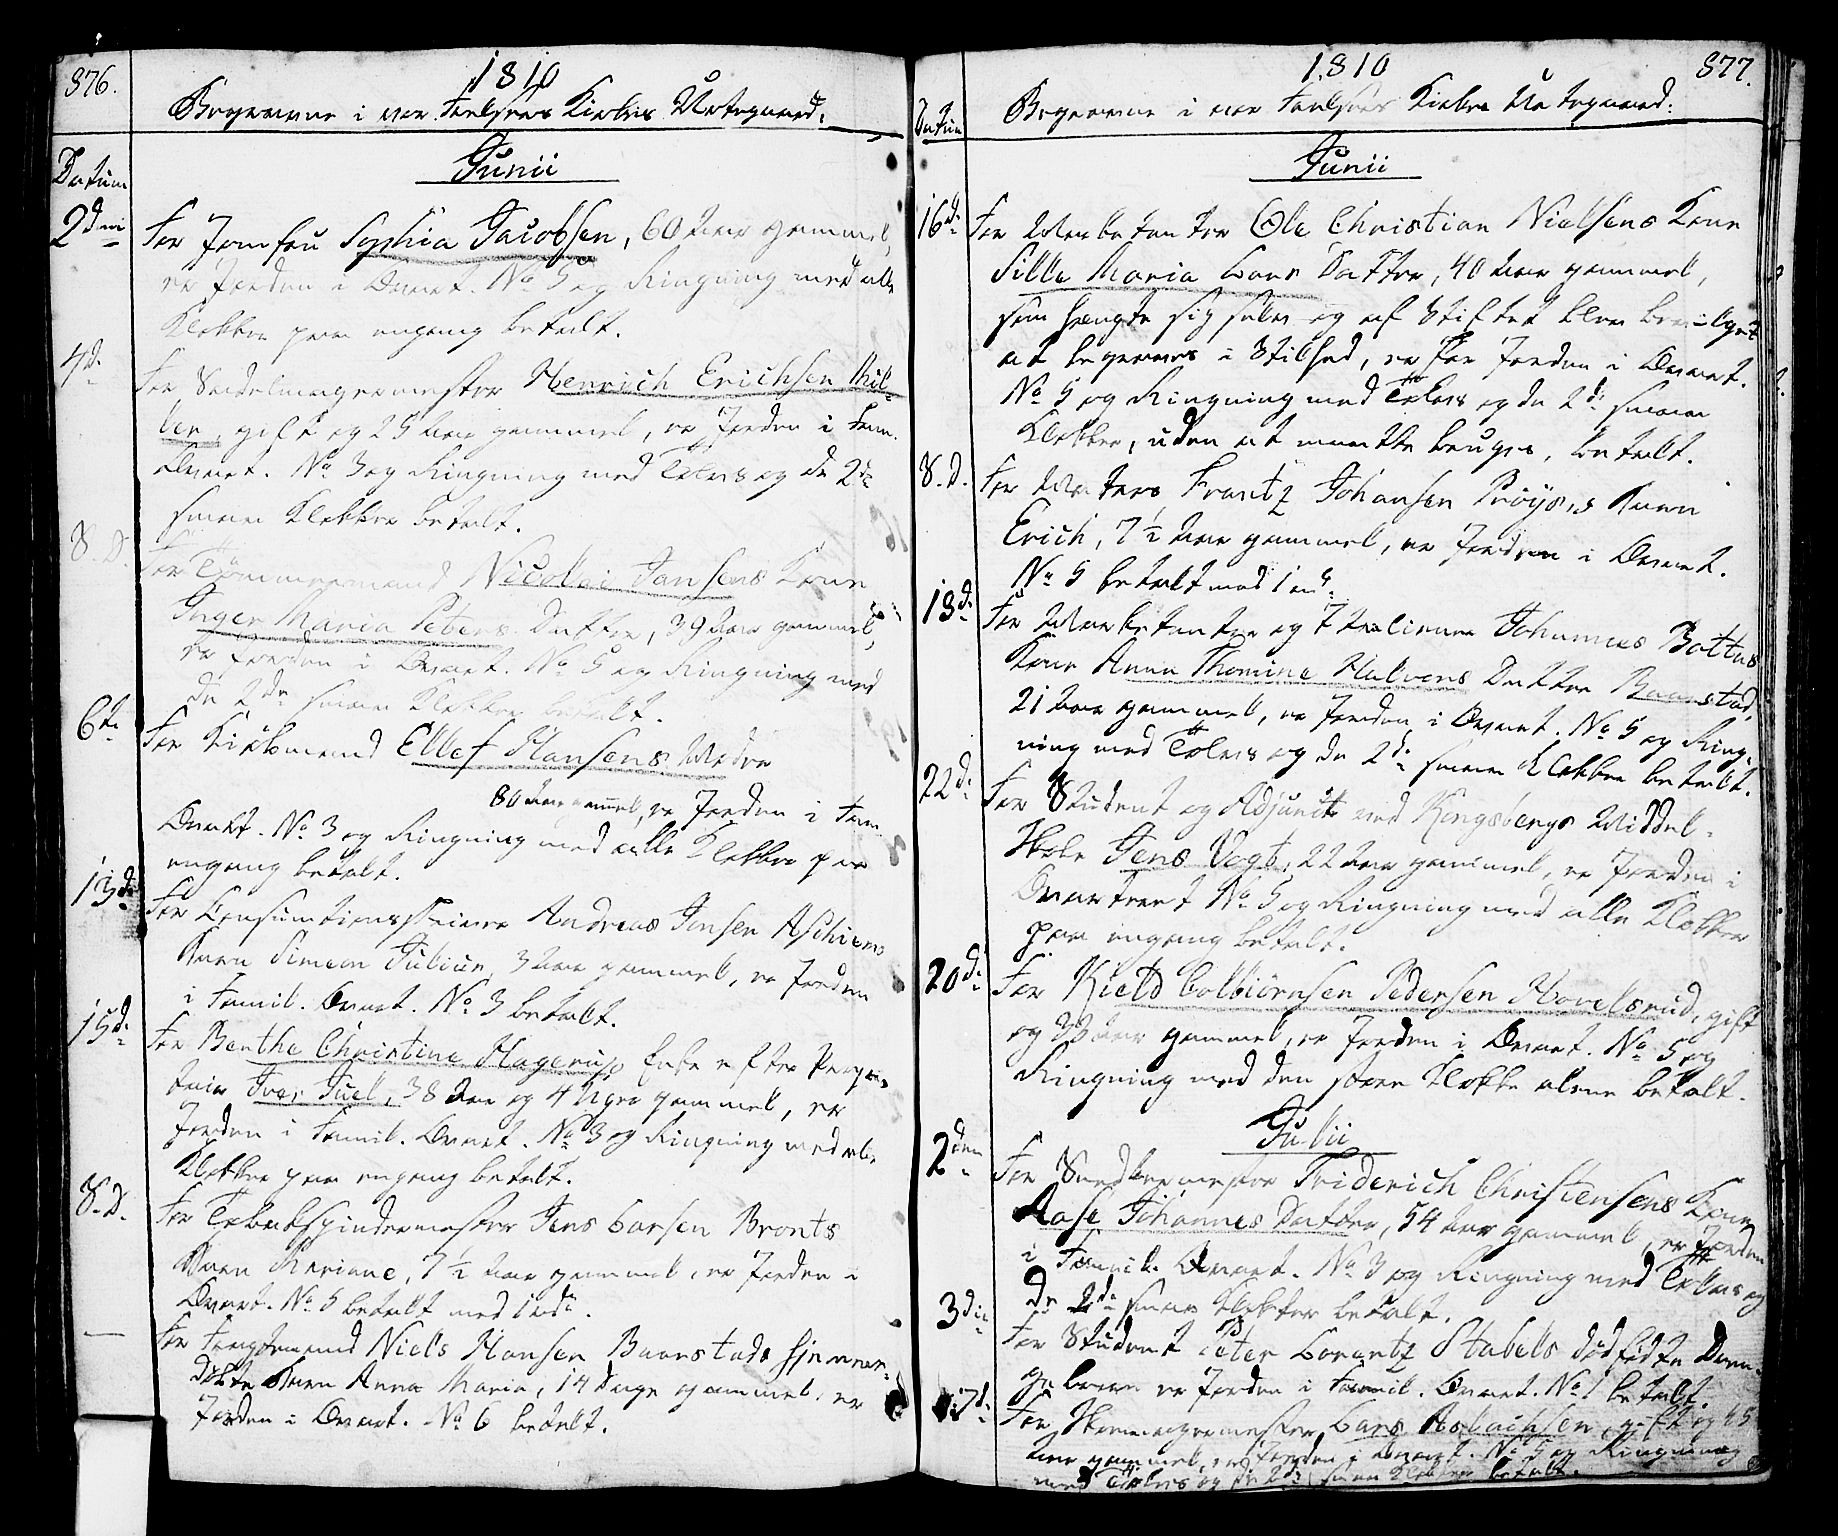 376.
1810
Begravne i vor Frelsers Kirkes Urtegaard.
Junii
Datum
2den
For Jomfru Sophia Jacobsen, 60 Aar gammel,
er Jorden i Qvart. No 5 og Ringning med alle
Klokker paa engang betalt.
4de
For Sadelmagermester Henrich Erichsen Mül-
ler, gift og 25 Aar gammel, er Jorden i Fam.
Qvart. No 3 og Ringning med Tolvs og de 2de
smaae Klokker betalt.
S. D.
For Tømmermand Nicolai Jansens Kone
Inger Maria Peters Datter, 39 Aar gammel,
er Jorden i Qvart. No 5 og Ringning med
de 2de smaae Klokker betalt.
6te
For Kudskmand Ellef Hansens Moder
80 Aar gammel, er Jorden i Fam.
Qvart. No 3 og Ringning med alle Klokker paa
engang betalt.
13de
For Consumtionsskriver Andreas Jensen Aschiems
Barn Simeon Julius, 3 Aar gammel, er Jorden
i Famil. Qvart. No 3 betalt.
15de
For Berthe Christine Hagerup Enke efter
Iver Juel, 38 Aar og 4 Uger gammel, er
Jorden i Famil. Qvart. No 3 og Ringning med alle
Klokker paa engang betalt.
S. D.
For Tobakspindermester Jens Larsen Bronts
Barn Mariane, 7½ Aar gammel, er Jorden i
Qvart. No 5 betalt med 1 rd.
—
For Niels Hansen Baarstads hjemme-
døbte Barn Anna Maria, 14 Dage gammel, er
Jorden i Qvart. No 6 betalt.
377.
1810
Begravne i vor Frelsers Kirkes Urtegaard.
Datum
Junii
16de
For Marketenter Ole Christian Nielsens Kone
Sille Maria Lars Datter, 40 Aar gammel,
som hængte sig selv og af Stiftet blev bevilget
at begraves i Stilhed, er for Jorden i Qvart.
No 5 og Ringning med Tolvs og de 2de smaae
Klokker, uden at maatte bruges, betalt.
S. D.
For Frantz Johansen Prøys's Barn
Erich, 7½ Aar gammel, er Jorden i Qvart.
No 5 betalt med 1 rd.
18de
For Marketenter og Italiener Johannes Bottus
Kone Anna Thomine Halvors Datter Baarstad,
21 Aar gammel, er Jorden i Qvart. No 5 og Ring-
ning med Tolvs og de 2de smaae Klokker betalt.
22de
For Student og Adjunct ved Kongsbergs Middel-
Skole Jens Vogt, 22 Aar gammel, er Jorden i
Qvarteret No 5 og Ringning med alle Klokker
paa engang betalt.
20de
For Kield Colbiørnsen Pedersen Hovelsrud, gift
og 33 Aar gammel, er Jorden i Qvart. No 5 og
Ringning med den store Klokke alene betalt.
Julii
2den
For Snedkermester Friderich Christensens Kone
Aase Johannes Datter, 54 Aar gammel, er Jorden
i Famil. Qvart. No 3 og Ringning med Tolvs og
de 2de smaae Klokker betalt.
3die
For Student Peter Lorentz Stabels dødfødte Dren-
gebarn er Jorden i Famil. Qvart. No 1 betalt.
7de
For Skomagermester Lars Asbachsen, gift og 45
Aar gammel, er Jorden i Qvart. No 5 og Ringning
med Tolvs og de 2de smaae Klokker betalt.